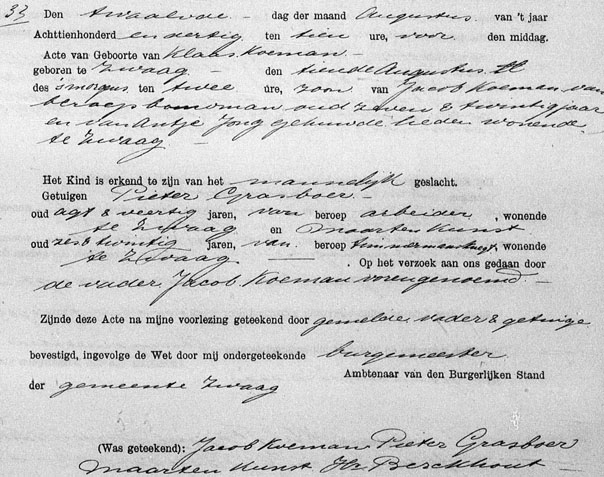 33 Den twaalvde dag der maand Augustus van 't jaar
Achttienhonderd en dertig ten tien ure, voor den middag.
Acte van Geboorte van Klaas Koeman
geboren te Zwaag den tiende Augustus
des s'morgens ten twee ure, zoon van Jacob Koeman van
beroep bouwman oud zeven & twintig jaar
en van Antje Jong gehuwde lieden wonende
te Zwaag
Het Kind is erkend te zijn van het mannelijk geslacht.
Getuigen Pieter Grasboer
oud agt & veertig jaren, van beroep arbeider, wonende
te Zwaag en Maarten Kunst
oud zes & twintig jaren, van beroep timmermansknegt, wonende
te Zwaag. Op het verzoek aan ons gedaan door
de vader Jacob Koeman vorengenoemd
Zijnde deze Acte na mijne voorlezing geteekend door gemelde vader & getuige
bevestigd, ingevolge de Wet door mij ondergeteekende burgemeester
Ambtenaar van den Burgerlijken Stand
der gemeente Zwaag
(Was geteekend): Jacob Koeman Pieter Grasboer
Maarten Kunst Hr Berckhout